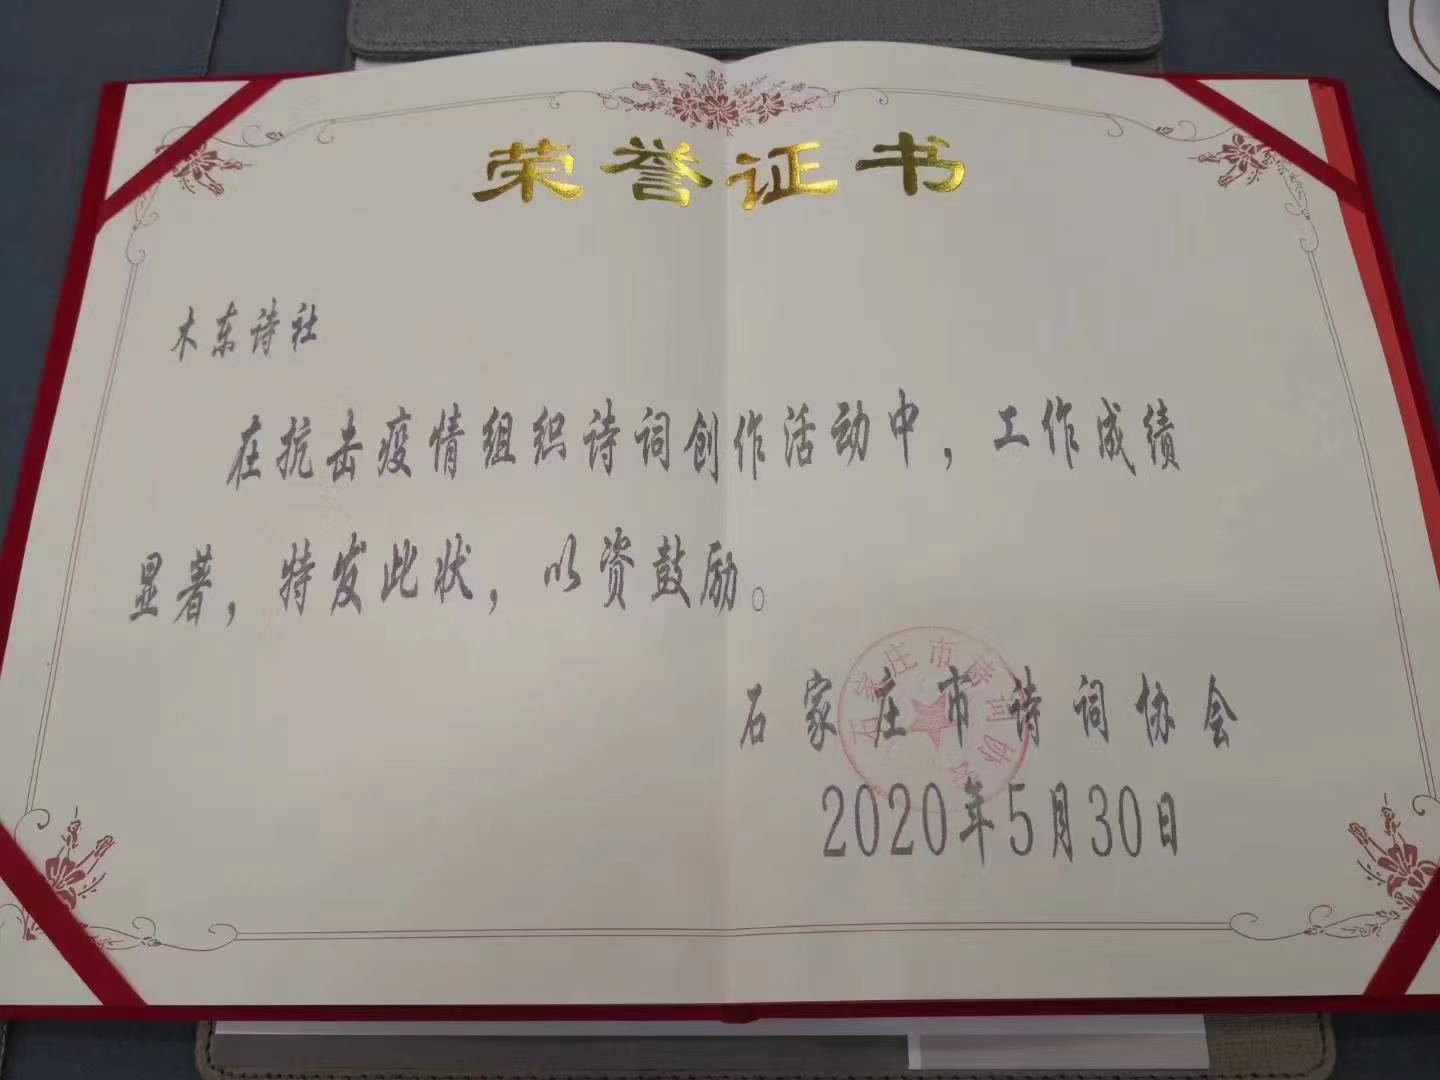 荣誉证书
木东诗社
在抗击疫情组织诗词创作活动中，工作成绩
显著，特发此状，以资鼓励。
石家庄市诗词协会
石家庄市诗词协会
2020年5月30日